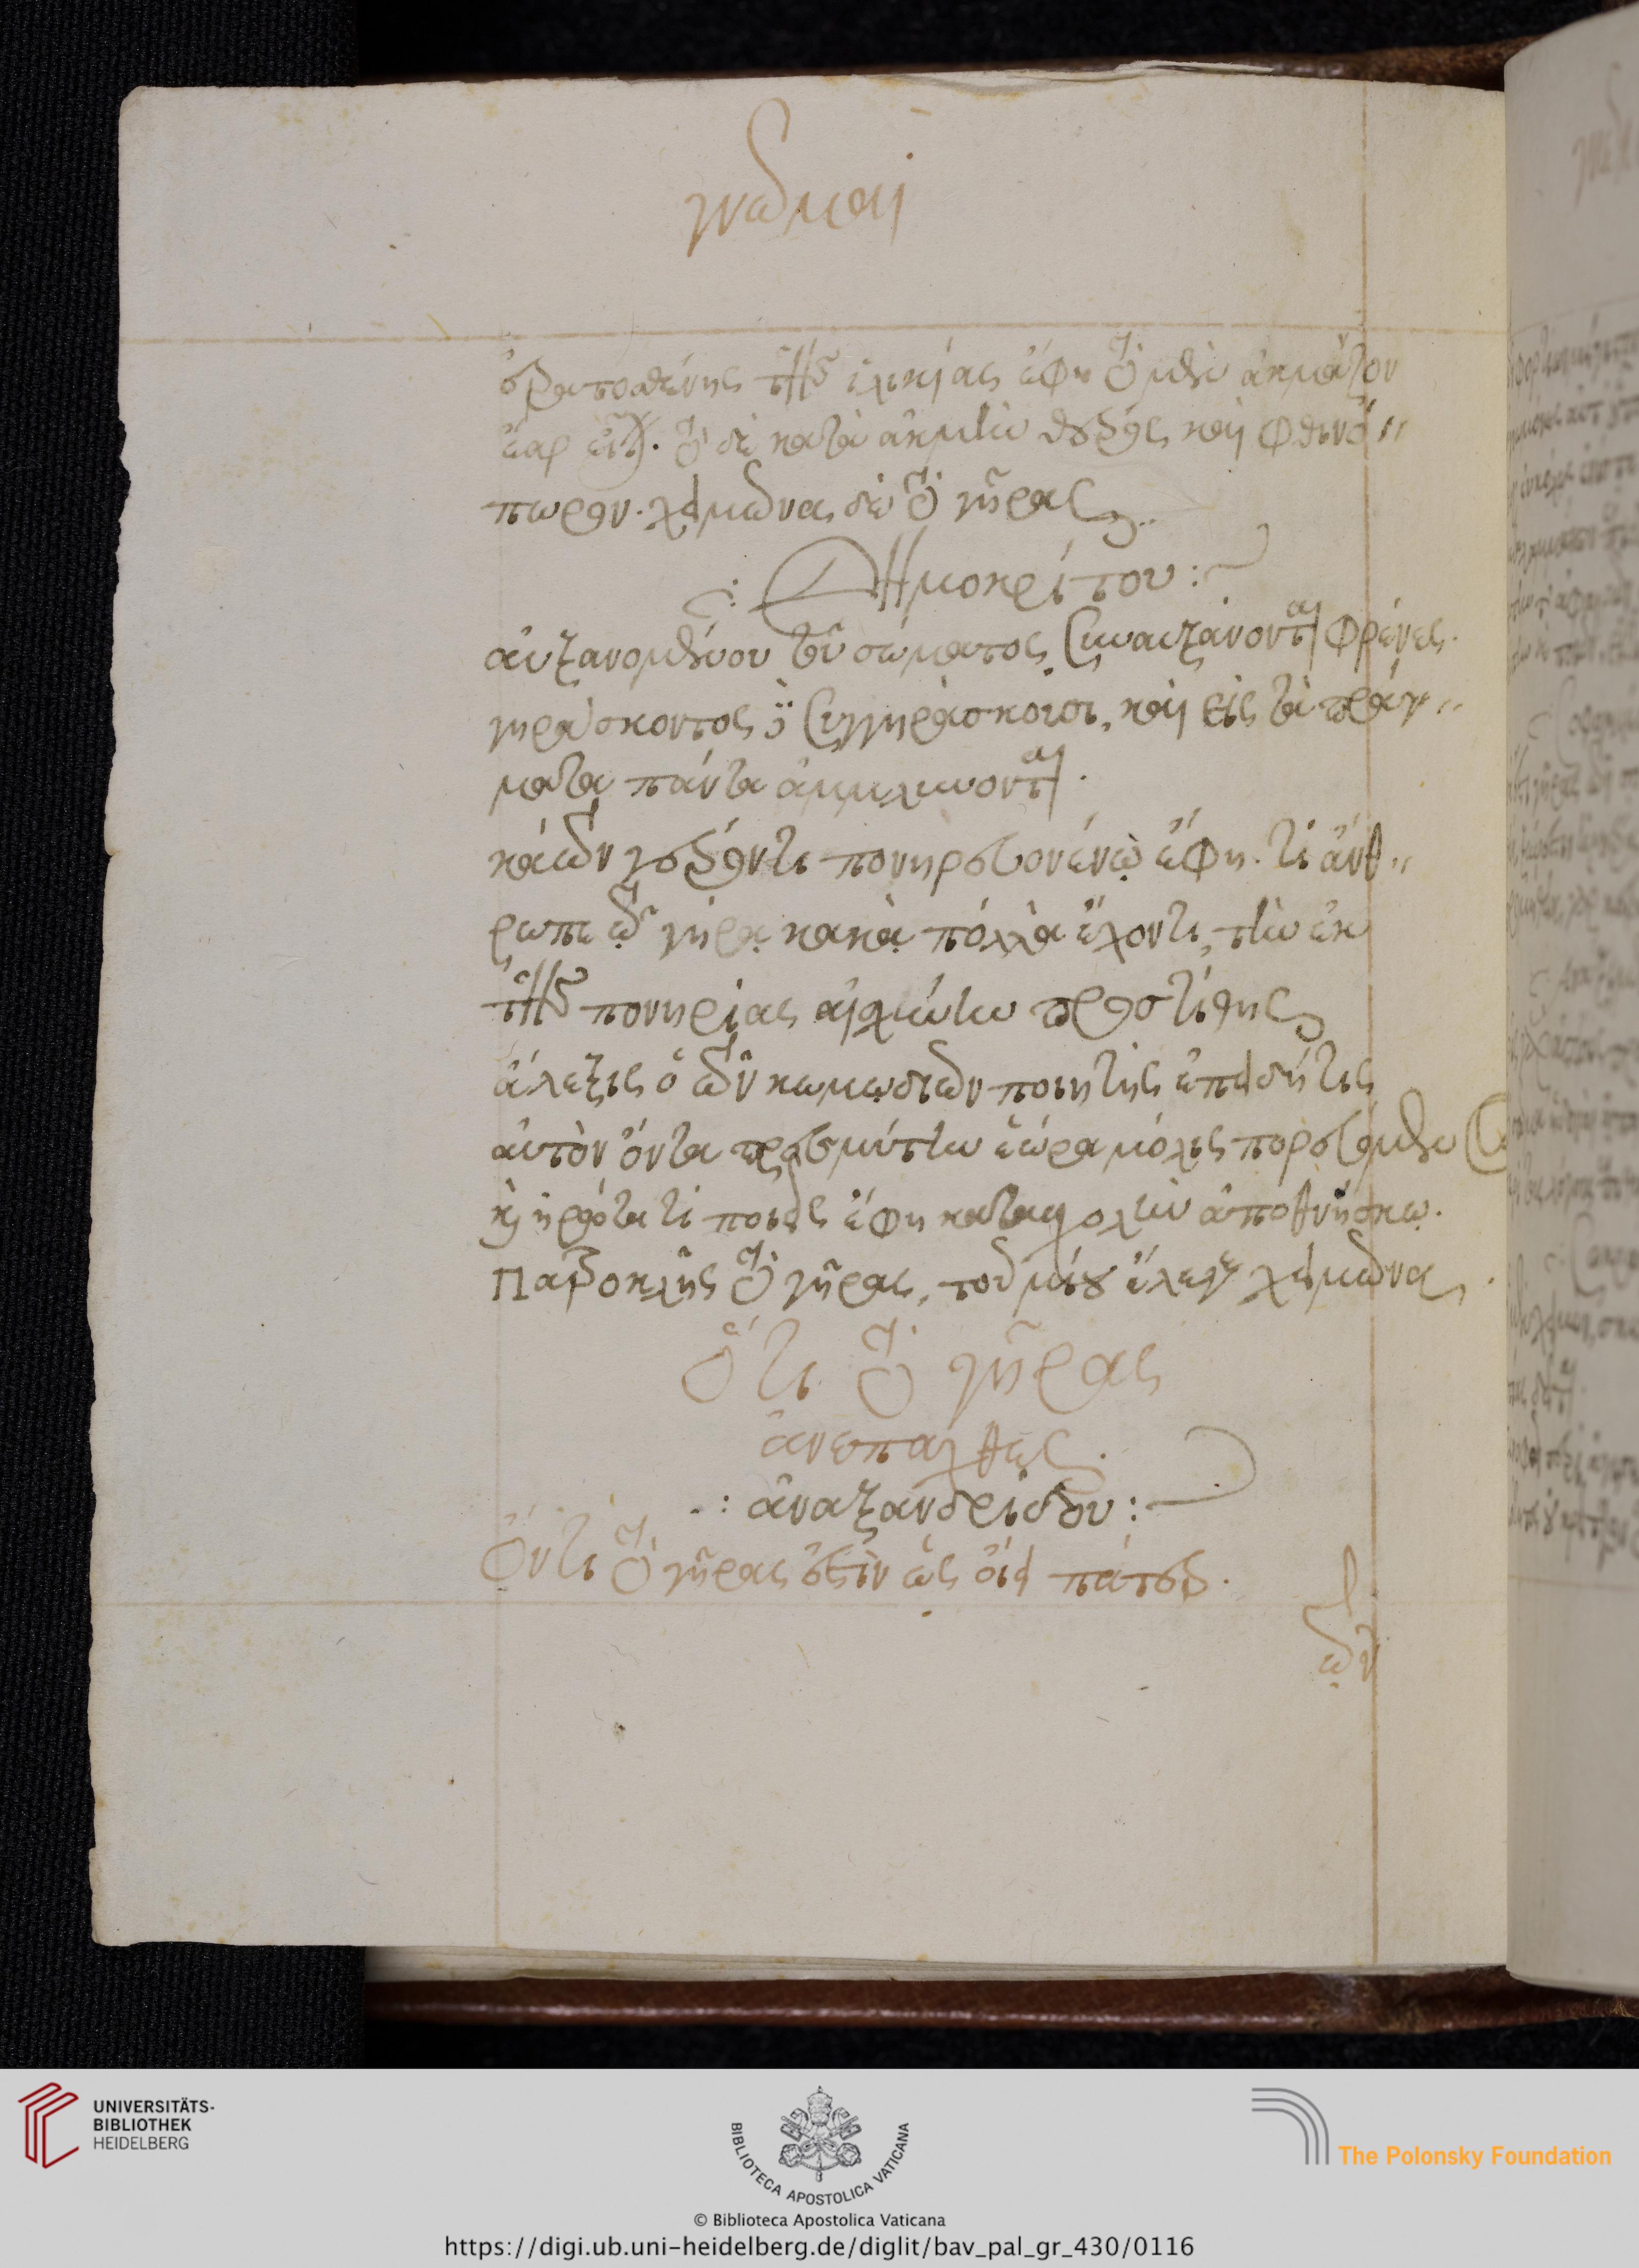 γνῶμαι
ἐρατοσθένης τῆς ἡλικίας ἔφη τὸ μὲν ἀκμάζον
ἔαρ εἶναι. τὸ δὲ κατὰ ἀκμὴν θέρος καὶ φθινό〃
πωρον. χειμῶνα δὲ τὸ γῆρας
: Δημοκρίτου :
αὐξανομένου τοῦ σώματος συναυξάνονται φρένες.
γηράσκοντος δὲ συγγηράσκουσι, καὶ εἰς τὰ πράγ〃
ματα πάντα ἀμβλύνονται.
κάτων γέροντι πονηρευομένῳ ἔφη. τί ἄνθ〃
ρωπε τῷ γήρᾳ κακὰ πολλὰ ἔχοντι, τὴν ἐκ
τῆς πονηρίας αἰσχύνην προστίθης
ἄλεξις ὁ τῶν κωμῳδιῶν ποιητὴς ἐπειδή τις
αὐτὸν ὄντα πρεσβύτην ἑώρα μόλις πορευόμενον
καὶ ἠρώτα τί ποιεῖς ἔφη κατασχολὴν ἀποθνήσκω.
Πατροκλῆς τὸ γῆρας, τοῦ βίου ἔλεγε χειμῶνα.
Ὅτι τὸ γῆρας
ἀνεπαχθές.
: ἀναξανδρίδου :
Οὔτι τὸ γῆρας ἐστὶν ὡς οἴει πάτερ.
τῶν
UNIVERSITÄTS-
BIBLIOTHEK
HEIDELBERG
BIBLIOTECA APOSTOLICA VATICANA
The Polonsky Foundation
© Biblioteca Apostolica Vaticana
https://digi.ub.uni-heidelberg.de/diglit/bav_pal_gr_430/0116